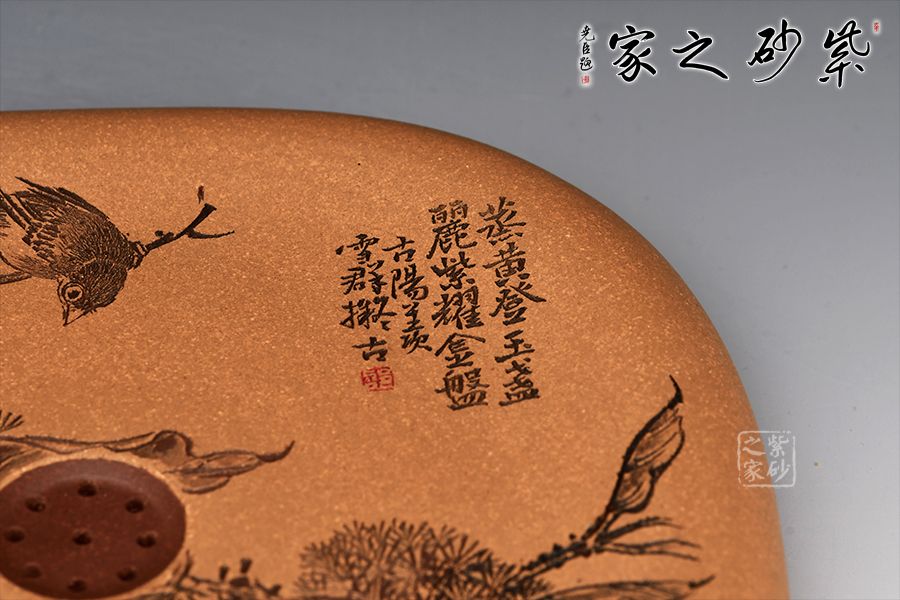 紫砂之家
尧臣题
蒸黄登玉盏
麗紫耀金盤
古陽羡
雪群擬古
紫砂之家